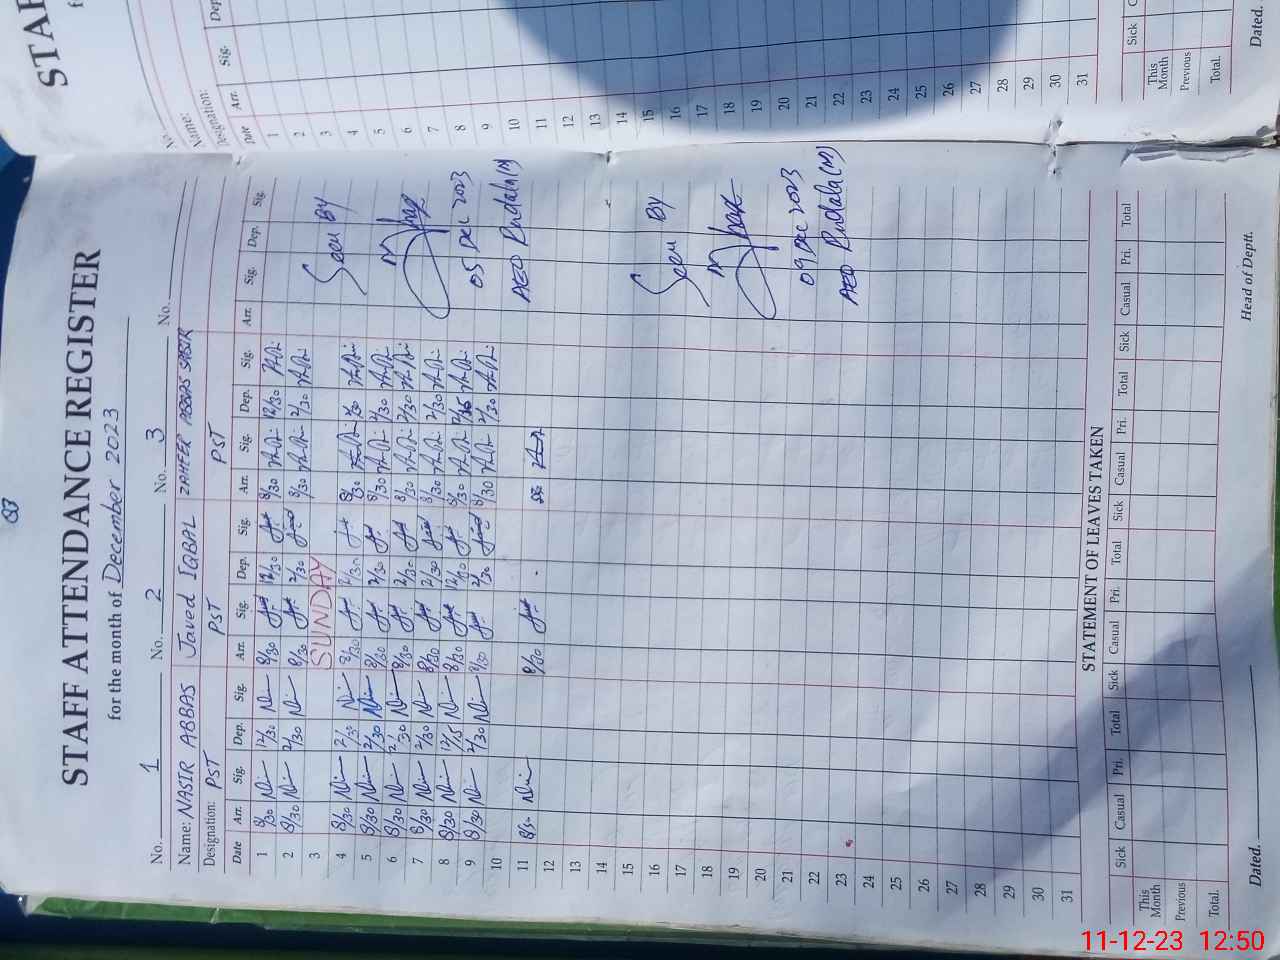 83
STAFF ATTENDANCE REGISTER
for the month of December 2023
No. 1 No. 2 No. 3 No.
Name: NASIR ABBAS Javed IQBAL ZAHEER ABBAS
Designation: PST PST PST
Date Arr. Sig. Dep. Sig. Arr. Sig. Dep. Sig. Arr. Sig. Dep. Sig. Arr. Sig. Dep. Sig.
1 8/30 12/30 8/30 12/30 8/30 12/30
2 8/30 2/30 8/30 2/30 8/30 2/30
3 SUNDAY
4 8/30 2/30 8/30 2/30 8/30 2/30 Seen By
5 8/30 2/30 8/30 2/30 8/30 2/30
6 8/30 2/30 8/30 2/30 8/30 2/30
7 8/30 2/30 8/30 2/30 8/30 2/30
8 8/30 12/15 8/30 12/30 8/30
9 8/30 2/30 8/30 2/30 8/30 2/30 05 Dec 2023
10
11 8/30 8/30 AEO (M)
12
13
14
15
16 Seen By
17
18
19
20
21
22 09 Dec 2023
23 AEO (M)
24
25
26
27
28
29
30
31
STATEMENT OF LEAVES TAKEN
Sick Casual Pri. Total Sick Casual Pri. Total Sick Casual Pri. Total Sick Casual Pri. Total
This Month
Previous
Total.
Dated. Head of Deptt.
STAF
No.
Name:
Designation:
Date Arr. Sig. Dep.
1
2
3
4
5
6
7
8
9
10
11
12
13
14
15
16
17
18
19
20
21
22
23
24
25
26
27
28
29
30
31
Sick
This Month
Previous
Total.
Dated.
11-12-23 12:50